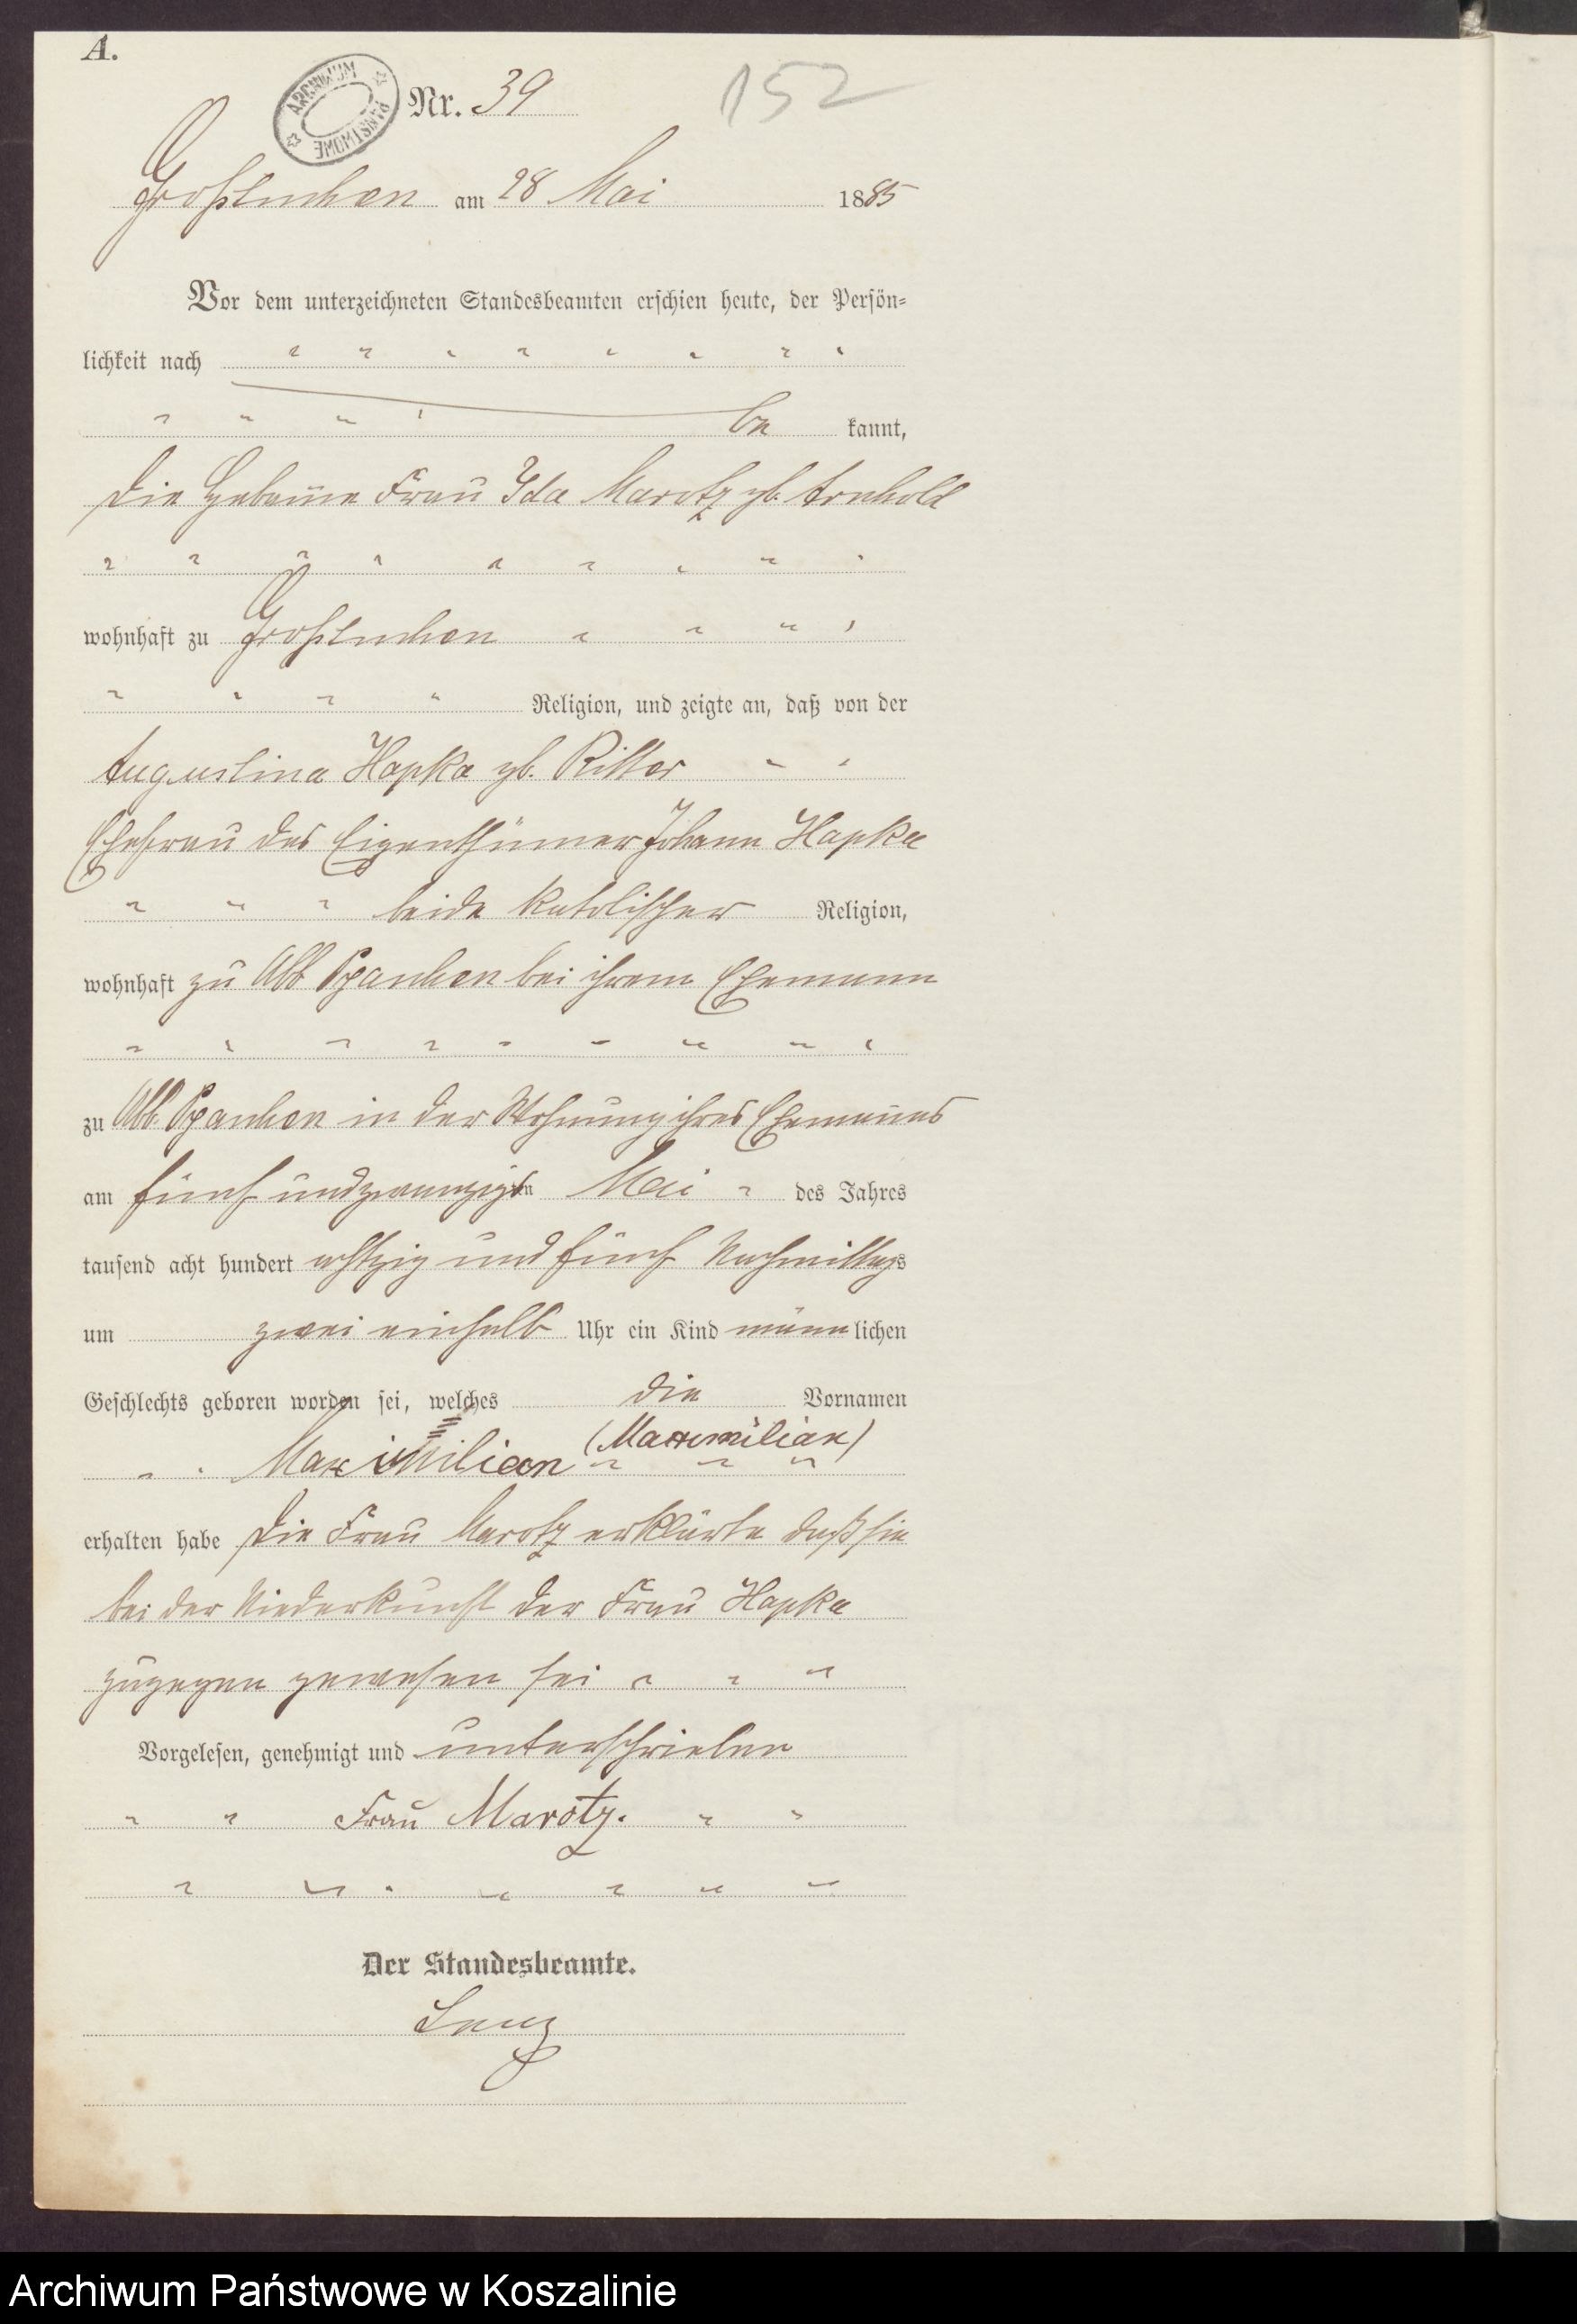 A.
ARCHIWUM PAŃSTWOWE
Nr. 39
152
Großtuchen am 28 Mai 1885
Vor dem unterzeichneten Standesbeamten erschien heute, der Persön-
lichkeit nach
be kannt,
die Hebamme Frau Ida Marotz gb. Arnhold
wohnhaft zu Großtuchen
Religion, und zeigte an, daß von der
Augustina Hapka gb. Ritter
Ehefrau des Eigenthümer Johann Hapka
beide katolischer Religion,
wohnhaft zu Abb. bei ihrem Ehemann
zu Abb. in der Wohnung ihres Ehemannes
am fünf und zwanzigsten Mai des Jahres
tausend acht hundert achtzig und fünf Nachmittags
um zwei einhalb Uhr ein Kind männlichen
Geschlechts geboren worden sei, welches die Vornamen
Maximilian (Maximilian)
erhalten habe Die Frau Marotz erklärte daß sie
bei der Niederkunft der Frau Hapka
zugegen gewesen sei
Vorgelesen, genehmigt und unterschrieben
Frau Marotz.
Der Standesbeamte.
Lenz
Archiwum Państwowe w Koszalinie